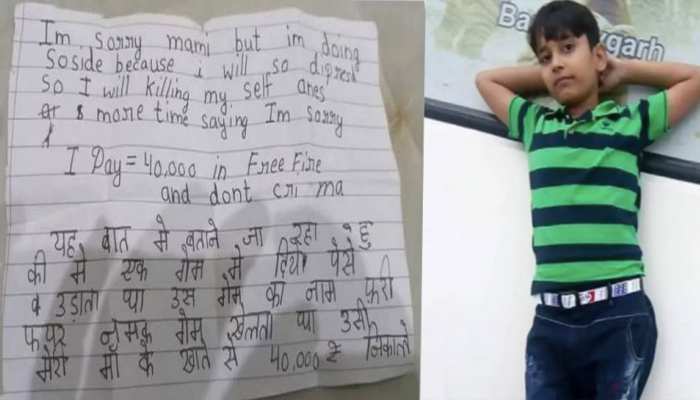 Im sorry mami but im doing
Soside because i will so dipresh
So I will killing my self ones
more time saying Im sorry
I Pay = 40,000 in Free Fire
and dont cri ma
यह बात मे बताने जा रहा हु
की मे एक गेम मे दिया पैसे
उड़ाता था उस गेम का नाम फरी
फायर गेम खेलता था उसी
मेरी माँ के खाते से 40,000 ₹ निकाले
Ba garh